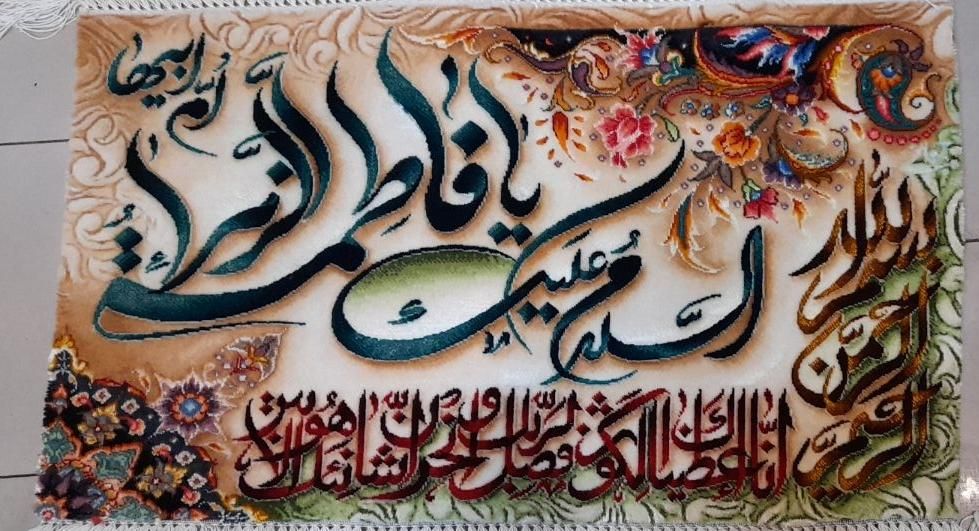 بسم الله الرحمن الرحیم
السلام علیک یا فاطمة الزهراء
ام ابیها
انا اعطیناک الکوثر فصل لربک وانحر ان شانئک هو الابتر